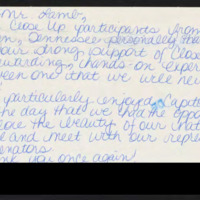 Mr. Lamb,
Close Up participants from
Tennessee personally tha
our strong support of Close
warding, hands-on "Exper
een one that we will nev
particularly enjoyed Capitol
the day that we had the oppo
the beauty of our nati
and meet with our repre
enators.
you once again!